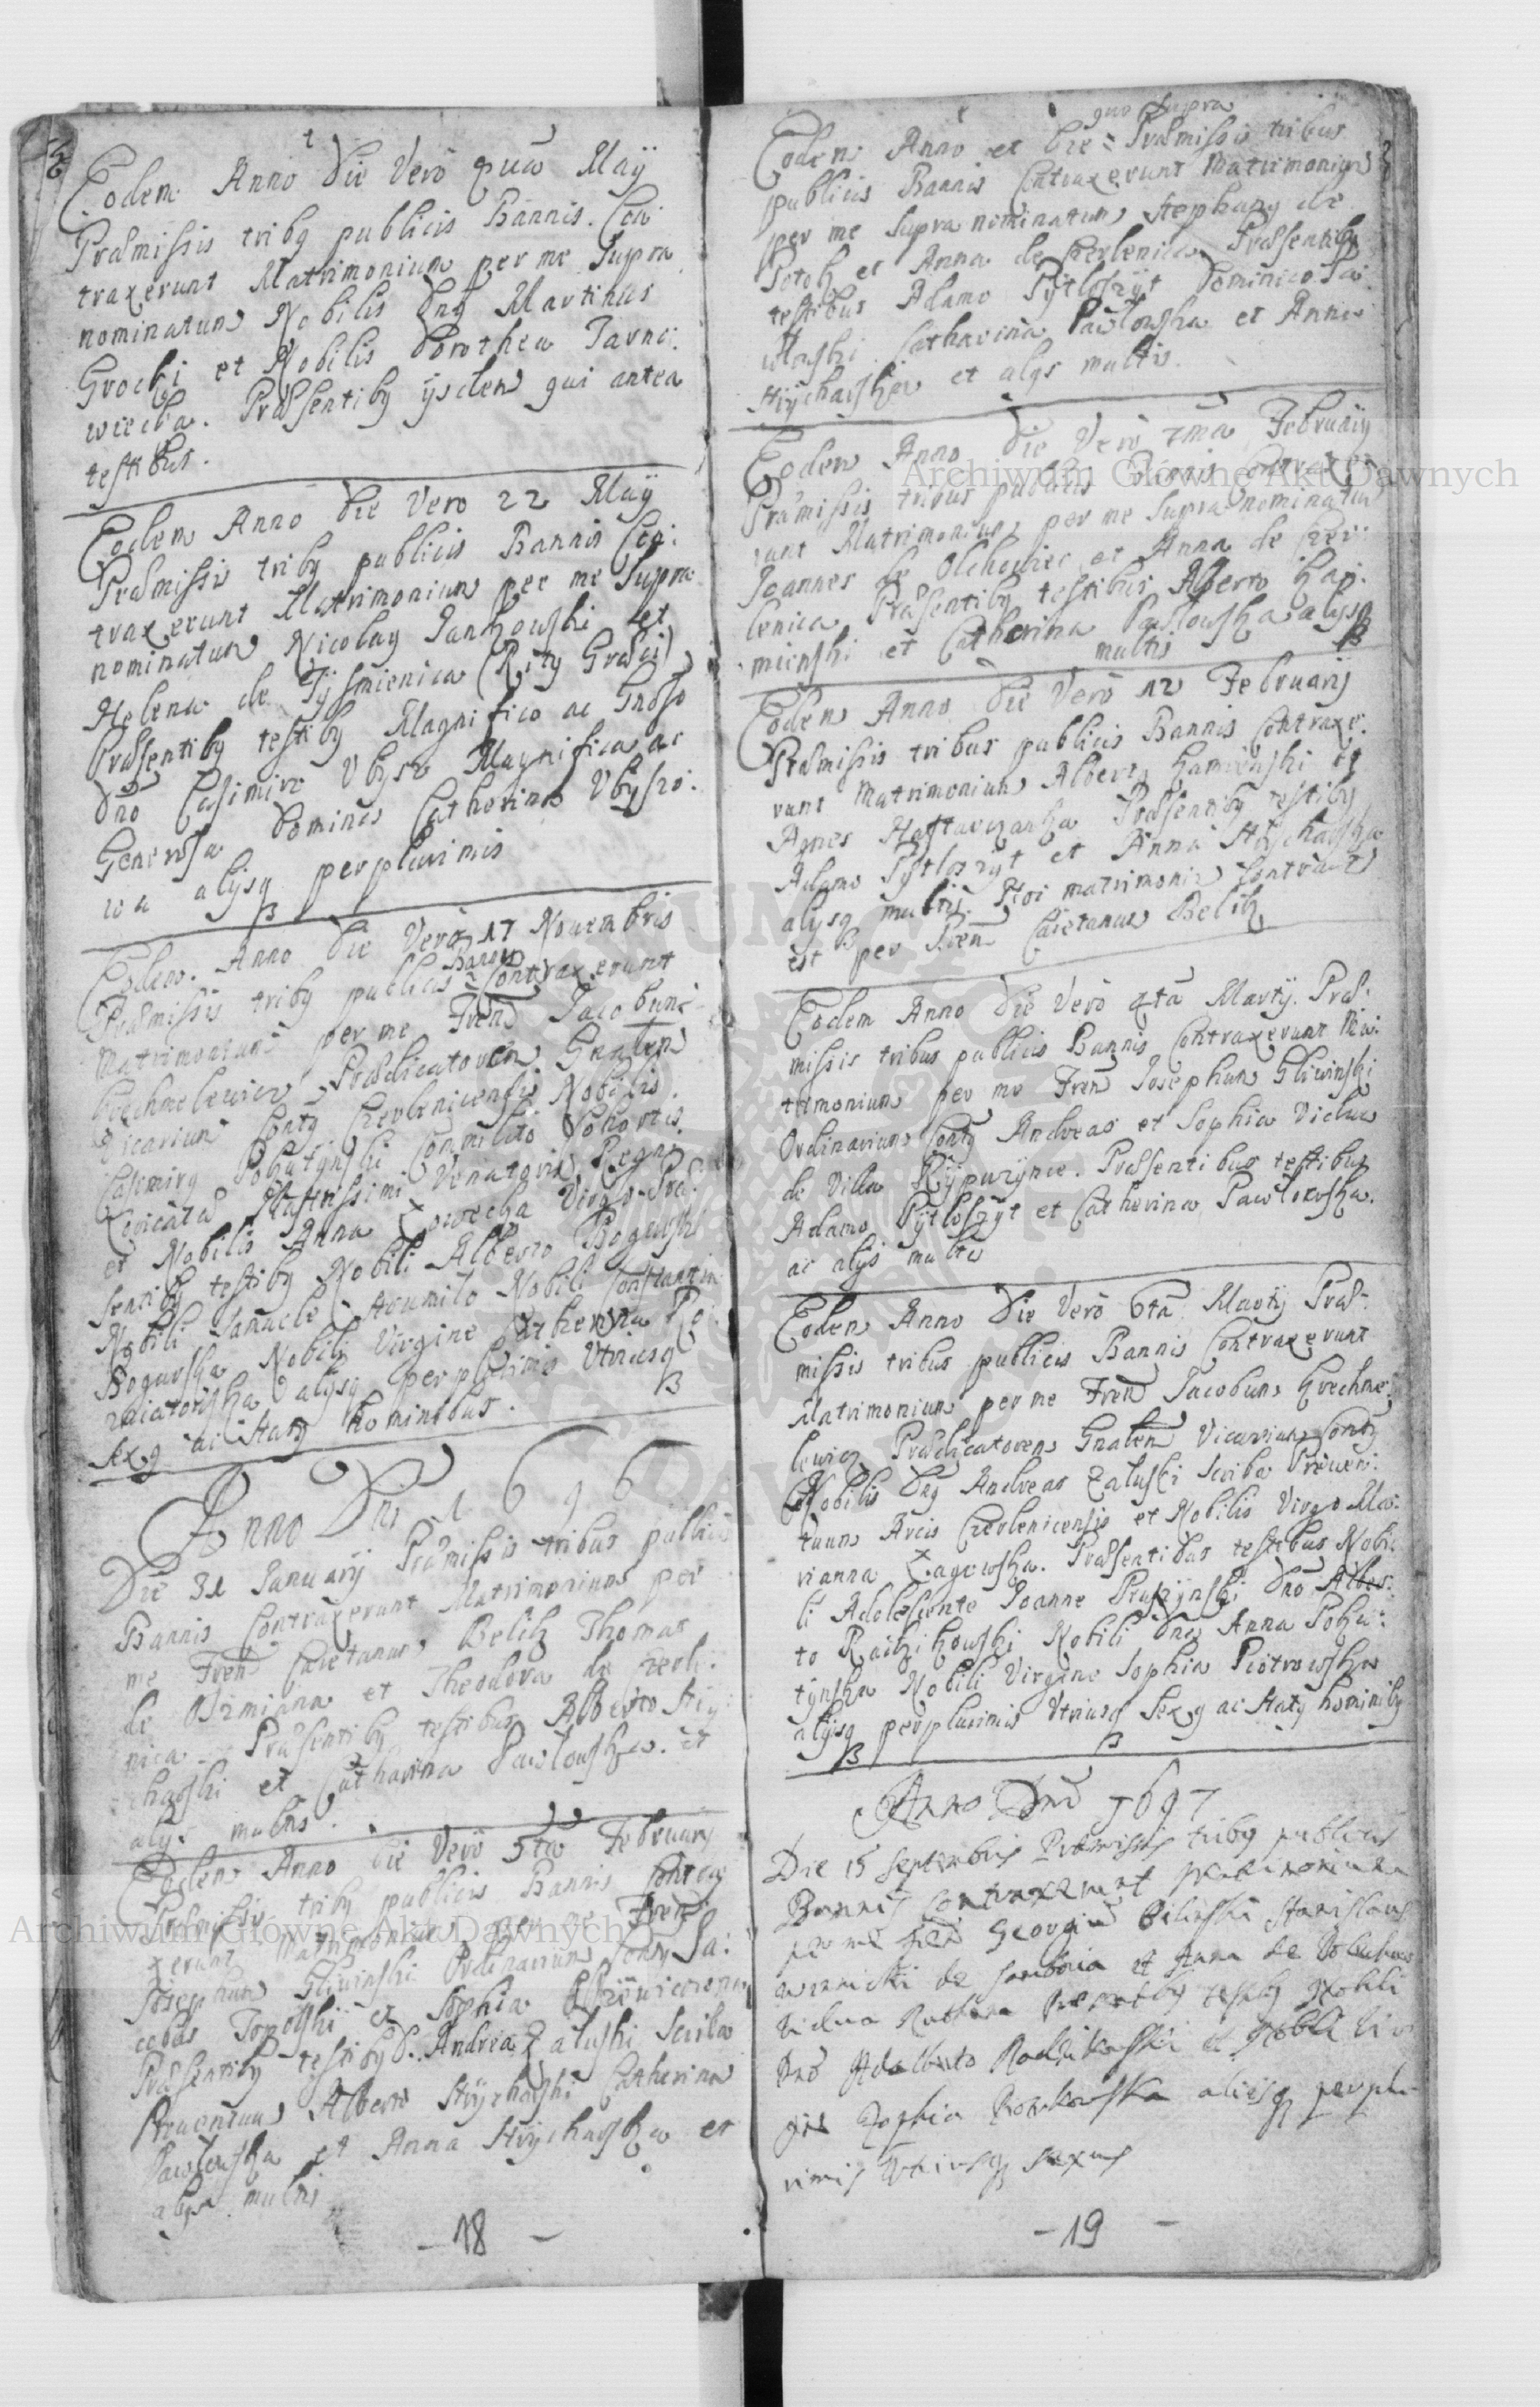 Eodem Anno Die Vero Maÿ
Præmissis tribq publicis Bannis. Con:
traxerunt Matrimonium per me Supra
nominatum Nobilis Dnq Martinus
Grocki et Nobilis Dorothea Tarno:
wiecka. Præsentibq ijsdem qui antea
testibus.
Eodem Anno Die Vero 22 Maÿ
Præmissis tribq publicis Bannis Con:
traxerunt Matrimonium per me Supra
nominatum Nicolaq Jankowski et
Helena de Tÿsmienica (Ritq Græci)
Præsentibq testibq Magnifico ac Gnoso
Dno Casimiro Ubysz Magnifica ac
Generosa Domina Catherina Ubyszo:
wa alijsq perplurimis
Eodem. Anno Die Vero 17 Nouembris
Præmissis tribq publicis Bannis Contraxerunt
Matrimonium per me Frem Jacobum
Grechnelewicz Prædicatorem Gnalem
Vicarium Contq Czerlenicensis Nobilis
Casimirq Pohatÿnski Commilito Cohortis
Illustrissimi Venatoris Regni
et Nobilis Anna Virgo Præ:
sentibq testibq Nobili Alberto Boguski
Nobili Nobili Constantia
Boguska Nobili Virgine Catherina
alijsq perplurimis Utriusq
Sexq ac Statq hominibus.
Anno Dni 1696
Die 31 Januarÿ Præmissis tribus publicis
Bannis Contraxerunt Matrimonium per
me Frem Caietanum Belch Thomas
de Ozmiana et Theodora de Czerle:
nica Præsentibq testibus Alberto Strÿ:
chaski et Catharina Pawlowska. et
alijs multis.
Eodem Anno Die Vero 5ta Februarÿ
Præmissis tribq publicis Bannis Contra
xerunt Matrimonium per me Frem
Josephum Gliwinski Ordinarium Contq Ja:
cobus Topolski et Sophia
Præsentibq testibq D. Andrea Załuski Scriba
Prouentuum Alberto Strÿchaski Catherina
Pawlowska et Anna Strÿchaska et
alijs multis
- 18 -
quo supra
Eodem Anno et Die = Præmissis tribus
publicis Bannis Contraxerunt Matrimonium
per me Supra nominatum Stephanq de
Potok et Anna de Czerlenica Præsentibq
testibus Adamo Pÿtloszÿt Dominico
Catharina Pawlowska et Anna
Strÿchaska et alijs multis.
Eodem Anno Die Vero 7ma Februarÿ
Præmissis tribus publicis Bannis Contraxe:
runt Matrimonium per me Supra nominatum
Joannes de Olchowiec et Anna de Czer:
lenica Præsentibq testibus Alberto Kap:
minski et Catherina Pawlowska alijsq
multis
Eodem Anno Die Vero 12 Februarij
Præmissis tribus publicis Bannis Contraxe:
runt Matrimonium Albertq Kaminski et
Agnes Præsentibq testibq
Adamo Pÿtloszÿt et Anna Strÿchaska
alijsq multis. matrimonio
est per Frem Caietanum Belch
Eodem Anno Die Vero 4ta Martij. Præ:
missis tribus publicis Bannis Contraxerunt Ma:
trimonium per me Frem Josephum Gliwinski
Ordinarium Contq Andreas et Sophia Vidua
de Villa Rÿpuzÿnce. Præsentibus testibus
Adamo Pÿtloszÿt et Catherina Pawlowska.
ac alijs multis
Eodem Anno Die Vero 6ta Martij Præ:
missis tribus publicis Bannis Contraxerunt
Matrimonium per me Frem Jacobum Grechne:
lewicz Prædicatorem Gnalem Vicarium Contq
Nobilis Dnq Andreas Załuski Scriba Prouen:
tuum Arcis Czerlenicensis et Nobilis Virgo Ma:
rianna Præsentibus testibus Nobi:
li Adolescente Joanne Dno Alber:
to Nobili Dna Anna Poha:
tÿnska Nobili Virgine Sophia Piotrowska
alijsq perplurimis Utriusq Sexq ac Statq hominibq
Anno Dni 1697
Die 15 Septembris Præmissis tribq publicis
Bannis Contraxerunt Matrimonium
per me frem Georgium Bilinski Stanislaus
de Sambria et Anna de
Vidua Præsentibq testibq Nobili
Dno Adalberto et Nobili Vir
gine Zophia alijsq perplu
rimis Utriusq Sexus
- 19 -
Archiwum Główne Akt Dawnych
Archiwum Główne Akt Dawnych